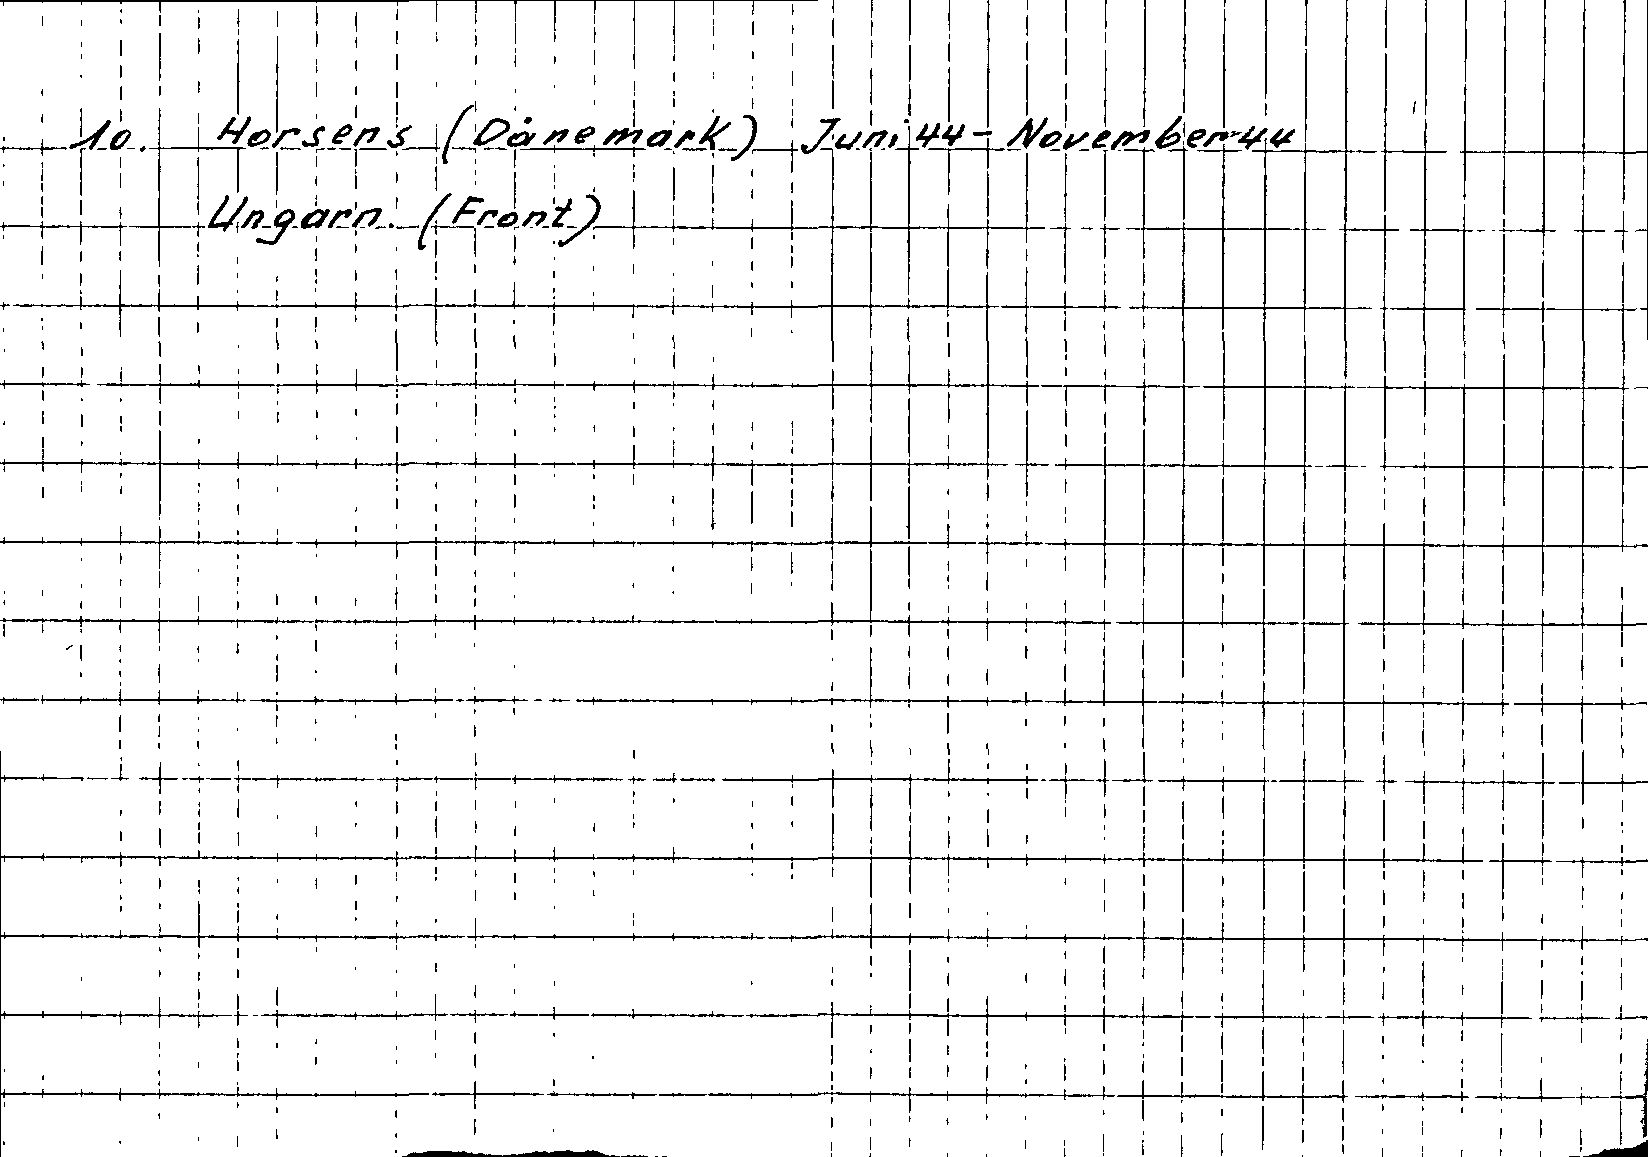 10. Horsens (Dänemark) Juni 44 - November 44
Ungarn. (Front)